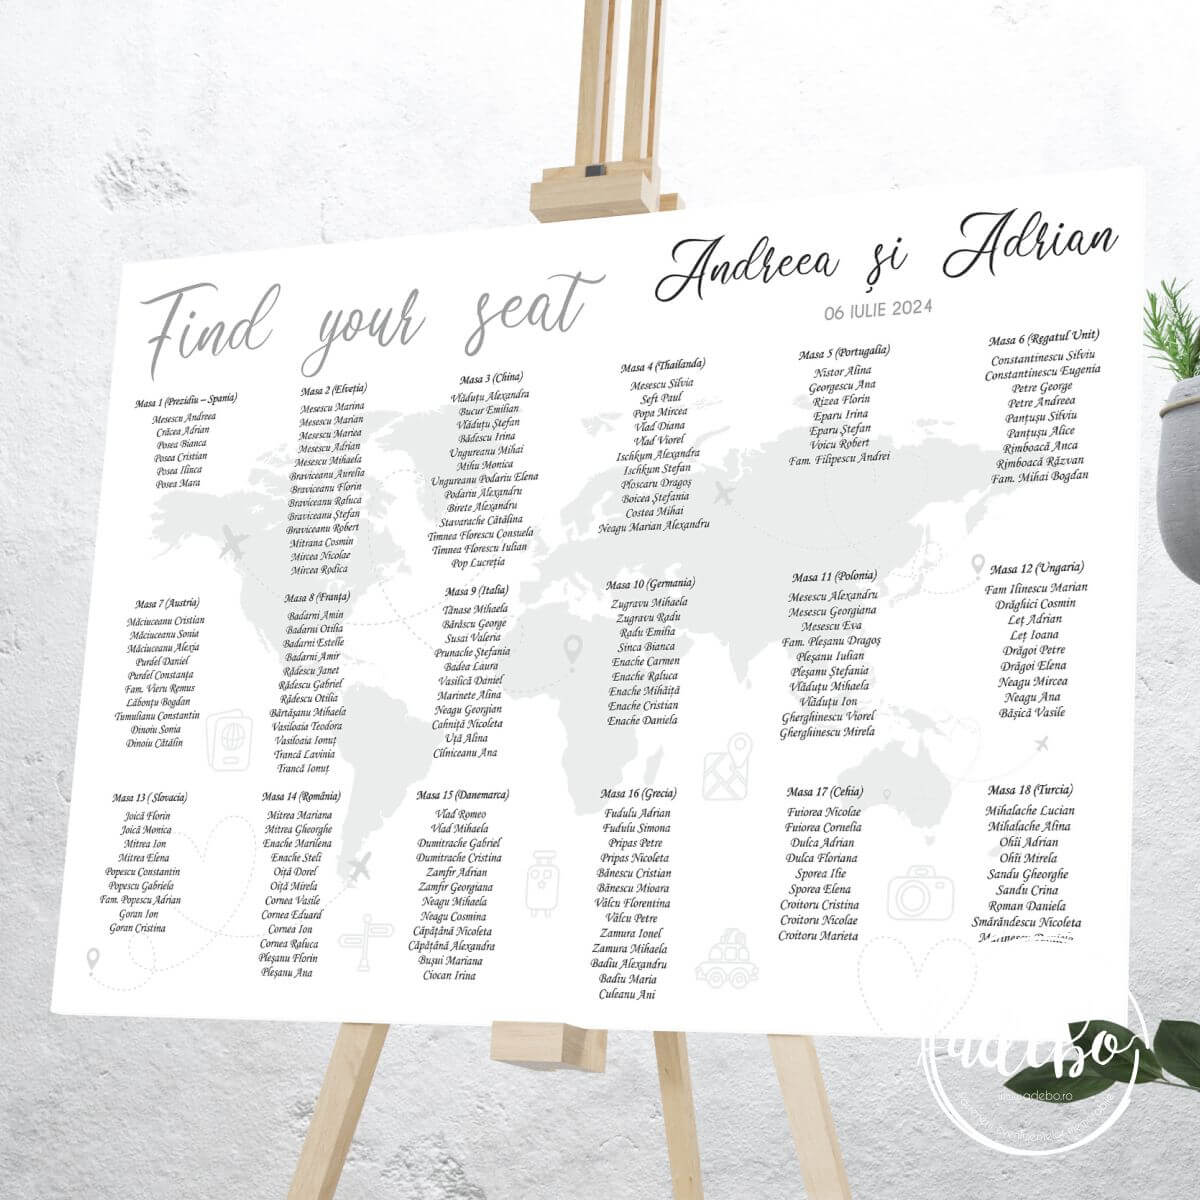 Find your seat
Andreea și Adrian
06 IULIE 2024
Masa 1 (Prezidiu – Spania)
Mesescu Andreea
Crăcea Adrian
Posea Bianca
Posea Cristian
Posea Ilinca
Posea Mara
Masa 2 (Elveția)
Mesescu Marina
Mesescu Marian
Mesescu Mariea
Mesescu Adrian
Mesescu Mihaela
Braviceanu Aurelia
Braviceanu Florin
Braviceanu Raluca
Braviceanu Ștefan
Braviceanu Robert
Mitrana Cosmin
Mircea Nicolae
Mircea Rodica
Masa 3 (China)
Vlăduțu Alexandra
Bucur Emilian
Vlăduțu Ștefan
Bădescu Irina
Ungureanu Mihai
Mihu Monica
Ungureanu Podariu Elena
Podariu Alexandru
Birete Alexandru
Stavarache Cătălina
Timnea Florescu Consuela
Timnea Florescu Iulian
Pop Lucreția
Masa 4 (Thailanda)
Mesescu Silvia
Seft Paul
Popa Mircea
Vlad Diana
Vlad Viorel
Ischkum Alexandra
Ischkum Stefan
Ploscaru Dragoș
Boicea Ștefania
Costea Mihai
Neagu Marian Alexandru
Masa 5 (Portugalia)
Nistor Alina
Georgescu Ana
Rizea Florin
Eparu Irina
Eparu Ștefan
Voicu Robert
Fam. Filipescu Andrei
Masa 6 (Regatul Unit)
Constantinescu Silviu
Constantinescu Eugenia
Petre George
Petre Andreea
Pantușu Silviu
Pantușu Alice
Rimboacă Anca
Rimboacă Răzvan
Fam. Mihai Bogdan
Masa 7 (Austria)
Măciuceanu Cristian
Măciuceanu Sonia
Măciuceanu Alexia
Purdel Daniel
Purdel Constanța
Fam. Vieru Remus
Lăbonțu Bogdan
Tumulianu Constantin
Dinoiu Sonia
Dinoiu Cătălin
Masa 8 (Franța)
Badarni Amin
Badarni Otilia
Badarni Estelle
Badarni Amir
Rădescu Janet
Rădescu Gabriel
Rădescu Otilia
Bărtășanu Mihaela
Vasiloaia Teodora
Vasiloaia Ionuț
Trancă Lavinia
Trancă Ionuț
Masa 9 (Italia)
Tănase Mihaela
Bărăscu George
Susai Valeria
Prunache Ștefania
Badea Laura
Vasilică Daniel
Marinete Alina
Neagu Georgian
Cahniță Nicoleta
Uță Alina
Cîlniceanu Ana
Masa 10 (Germania)
Zugravu Mihaela
Zugravu Radu
Radu Emilia
Sinca Bianca
Enache Carmen
Enache Raluca
Enache Mihăiță
Enache Cristian
Enache Daniela
Masa 11 (Polonia)
Mesescu Alexandru
Mesescu Georgiana
Mesescu Eva
Fam. Pleșanu Dragoș
Pleșanu Iulian
Pleșanu Ștefania
Vlăduțu Mihaela
Vlăduțu Ion
Gherghinescu Viorel
Gherghinescu Mirela
Masa 12 (Ungaria)
Fam Ilinescu Marian
Drăghici Cosmin
Leț Adrian
Leț Ioana
Drăgoi Petre
Drăgoi Elena
Neagu Mircea
Neagu Ana
Bășică Vasile
Masa 13 ( Slovacia)
Joică Florin
Joică Monica
Mitrea Ion
Mitrea Elena
Popescu Constantin
Popescu Gabriela
Fam. Popescu Adrian
Goran Ion
Goran Cristina
Masa 14 (România)
Mitrea Mariana
Mitrea Gheorghe
Enache Marilena
Enache Steli
Oiță Dorel
Oiță Mirela
Cornea Vasile
Cornea Eduard
Cornea Ion
Cornea Raluca
Pleșanu Florin
Pleșanu Ana
Masa 15 (Danemarca)
Vlad Romeo
Vlad Mihaela
Dumitrache Gabriel
Dumitrache Cristina
Zamfir Adrian
Zamfir Georgiana
Neagu Mihaela
Neagu Cosmina
Căpățână Nicoleta
Căpățână Alexandra
Bușui Mariana
Ciocan Irina
Masa 16 (Grecia)
Fudulu Adrian
Fudulu Simona
Pripas Petre
Pripas Nicoleta
Bănescu Cristian
Bănescu Mioara
Vâlcu Florentina
Vâlcu Petre
Zamura Ionel
Zamura Mihaela
Badiu Alexandru
Badiu Maria
Culeanu Ani
Masa 17 (Cehia)
Fuiorea Nicolae
Fuiorea Cornelia
Dulca Adrian
Dulca Floriana
Sporea Ilie
Sporea Elena
Croitoru Cristina
Croitoru Nicolae
Croitoru Marieta
Masa 18 (Turcia)
Mihalache Lucian
Mihalache Alina
Ohîi Adrian
Ohîi Mirela
Sandu Gheorghe
Sandu Crina
Roman Daniela
Smărăndescu Nicoleta
adebo
www.adebo.ro